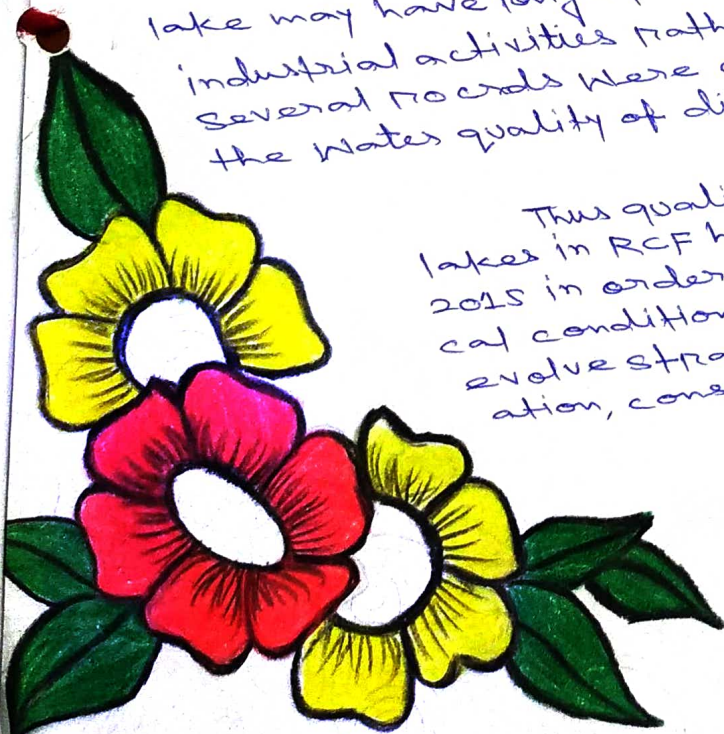 lake may have long
industrial activities rath
several rocrds were
the water quality of di
Thus quali
lakes in RCF h
2015 in order
cal condition
evolve stra
ation, cons